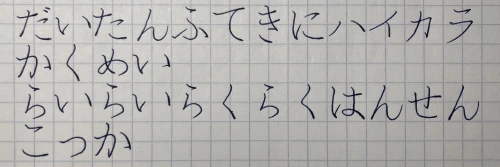 だいたんふてきにハイカラ
かくめい
らいらいらくらくはんせん
こっか